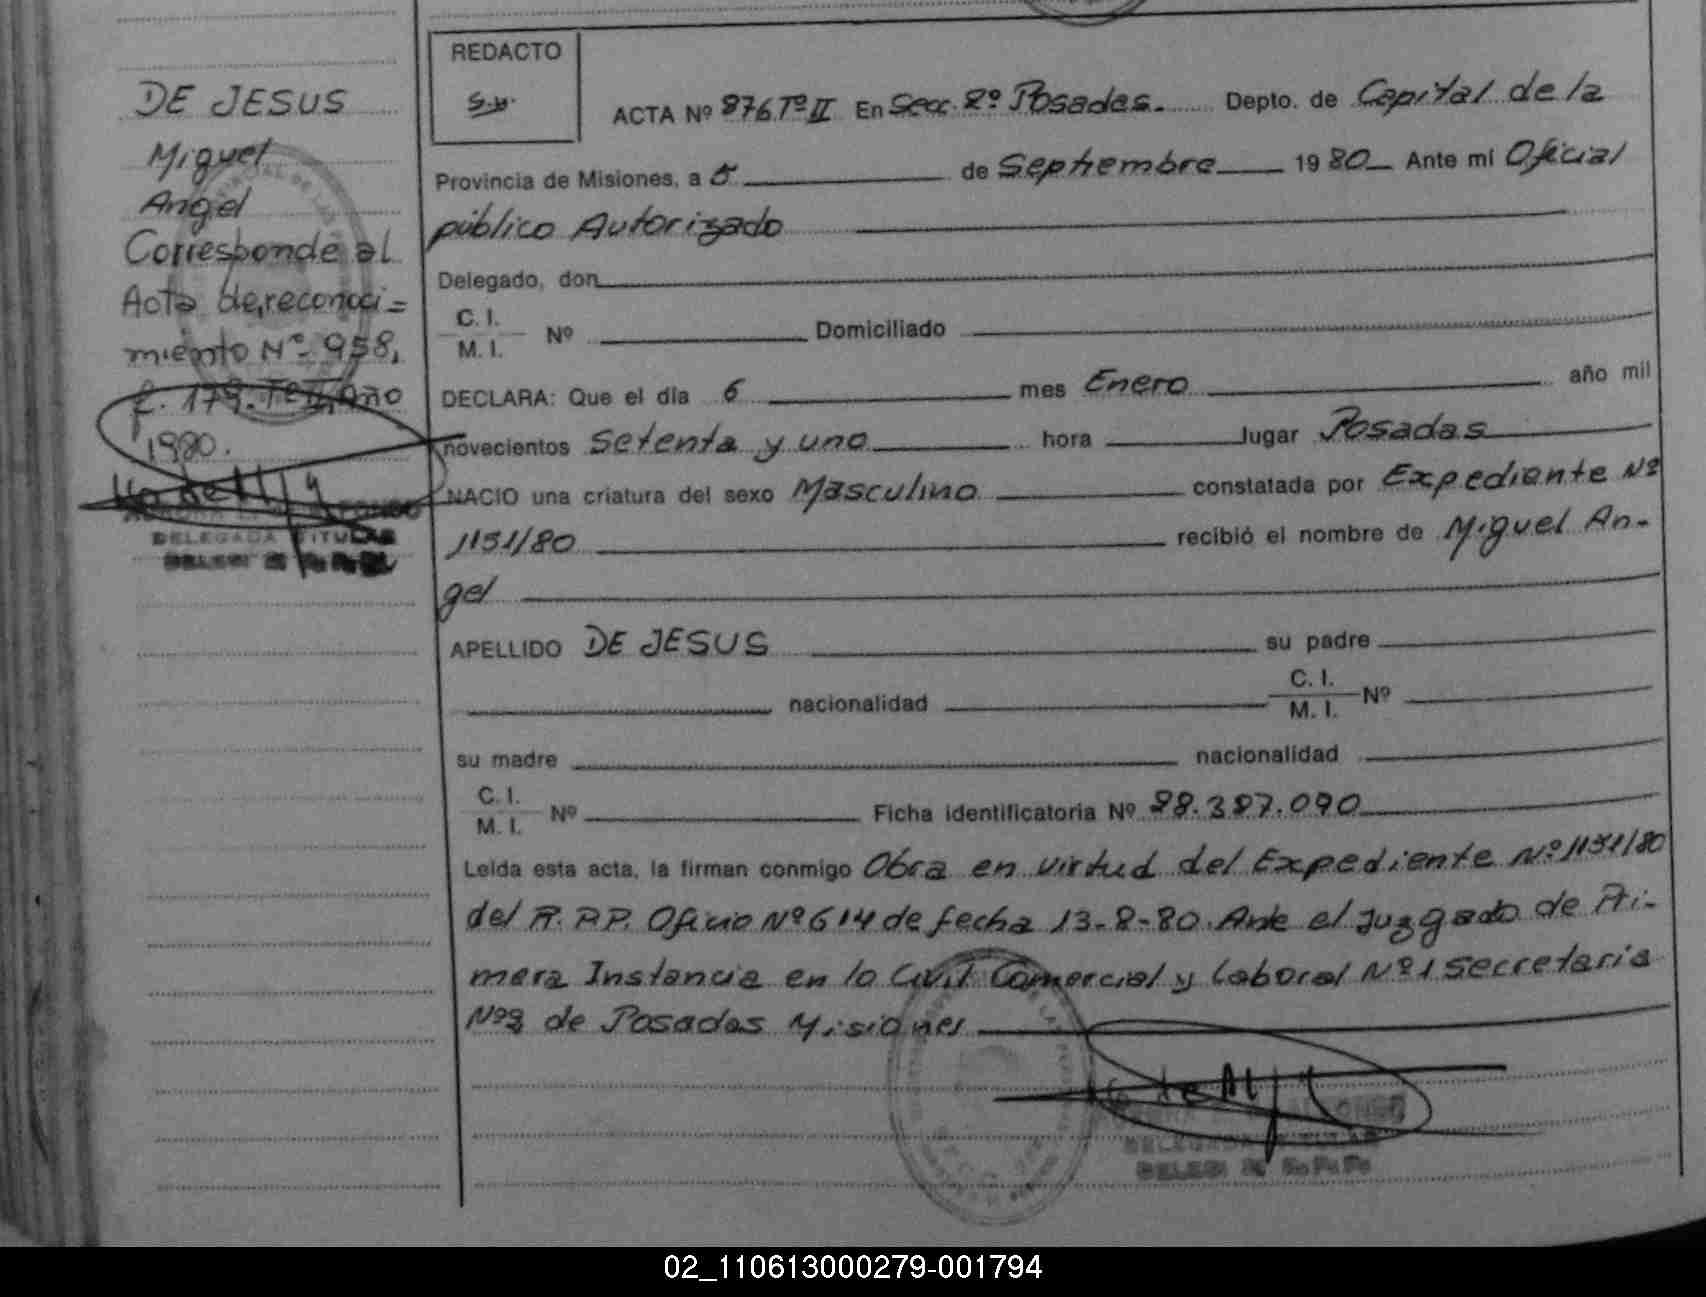 DE JESUS
Miguel
Angel
Corresponde al
Acta de reconoci=
miento Nº 958,
f. 179. Tº II, Año
1980.
DELEGADA TITULAR
REDACTO
ACTA Nº 876 Tº II En Secc. 2º Posadas. Depto. de Capital de la
Provincia de Misiones, a 5 de Septiembre 1980 Ante mi Oficial
público Autorizado
Delegado, don
C. I.
M. I. Nº Domiciliado
DECLARA: Que el día 6 mes Enero año mil
novecientos setenta y uno hora lugar Posadas
NACIO una criatura del sexo Masculino constatada por Expediente Nº
1151/80 recibió el nombre de Miguel An-
gel
APELLIDO DE JESUS su padre
nacionalidad C. I.
M. I. Nº
su madre nacionalidad
C. I.
M. I. Nº Ficha identificatoria Nº 28.387.090
Leída esta acta, la firman conmigo Obra en virtud del Expediente Nº 1151/80
del R.P.P. Oficio Nº 614 de fecha 13-8-80. Ante el Juzgado de Pri-
mera Instancia en lo Civil Comercial y Laboral Nº 1 Secretaria
de Posadas Misiones
DELEGADA TITULAR
02_110613000279-001794